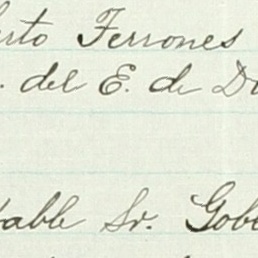 rto Ferrones
. del E. de Du
table Sr. Gobe